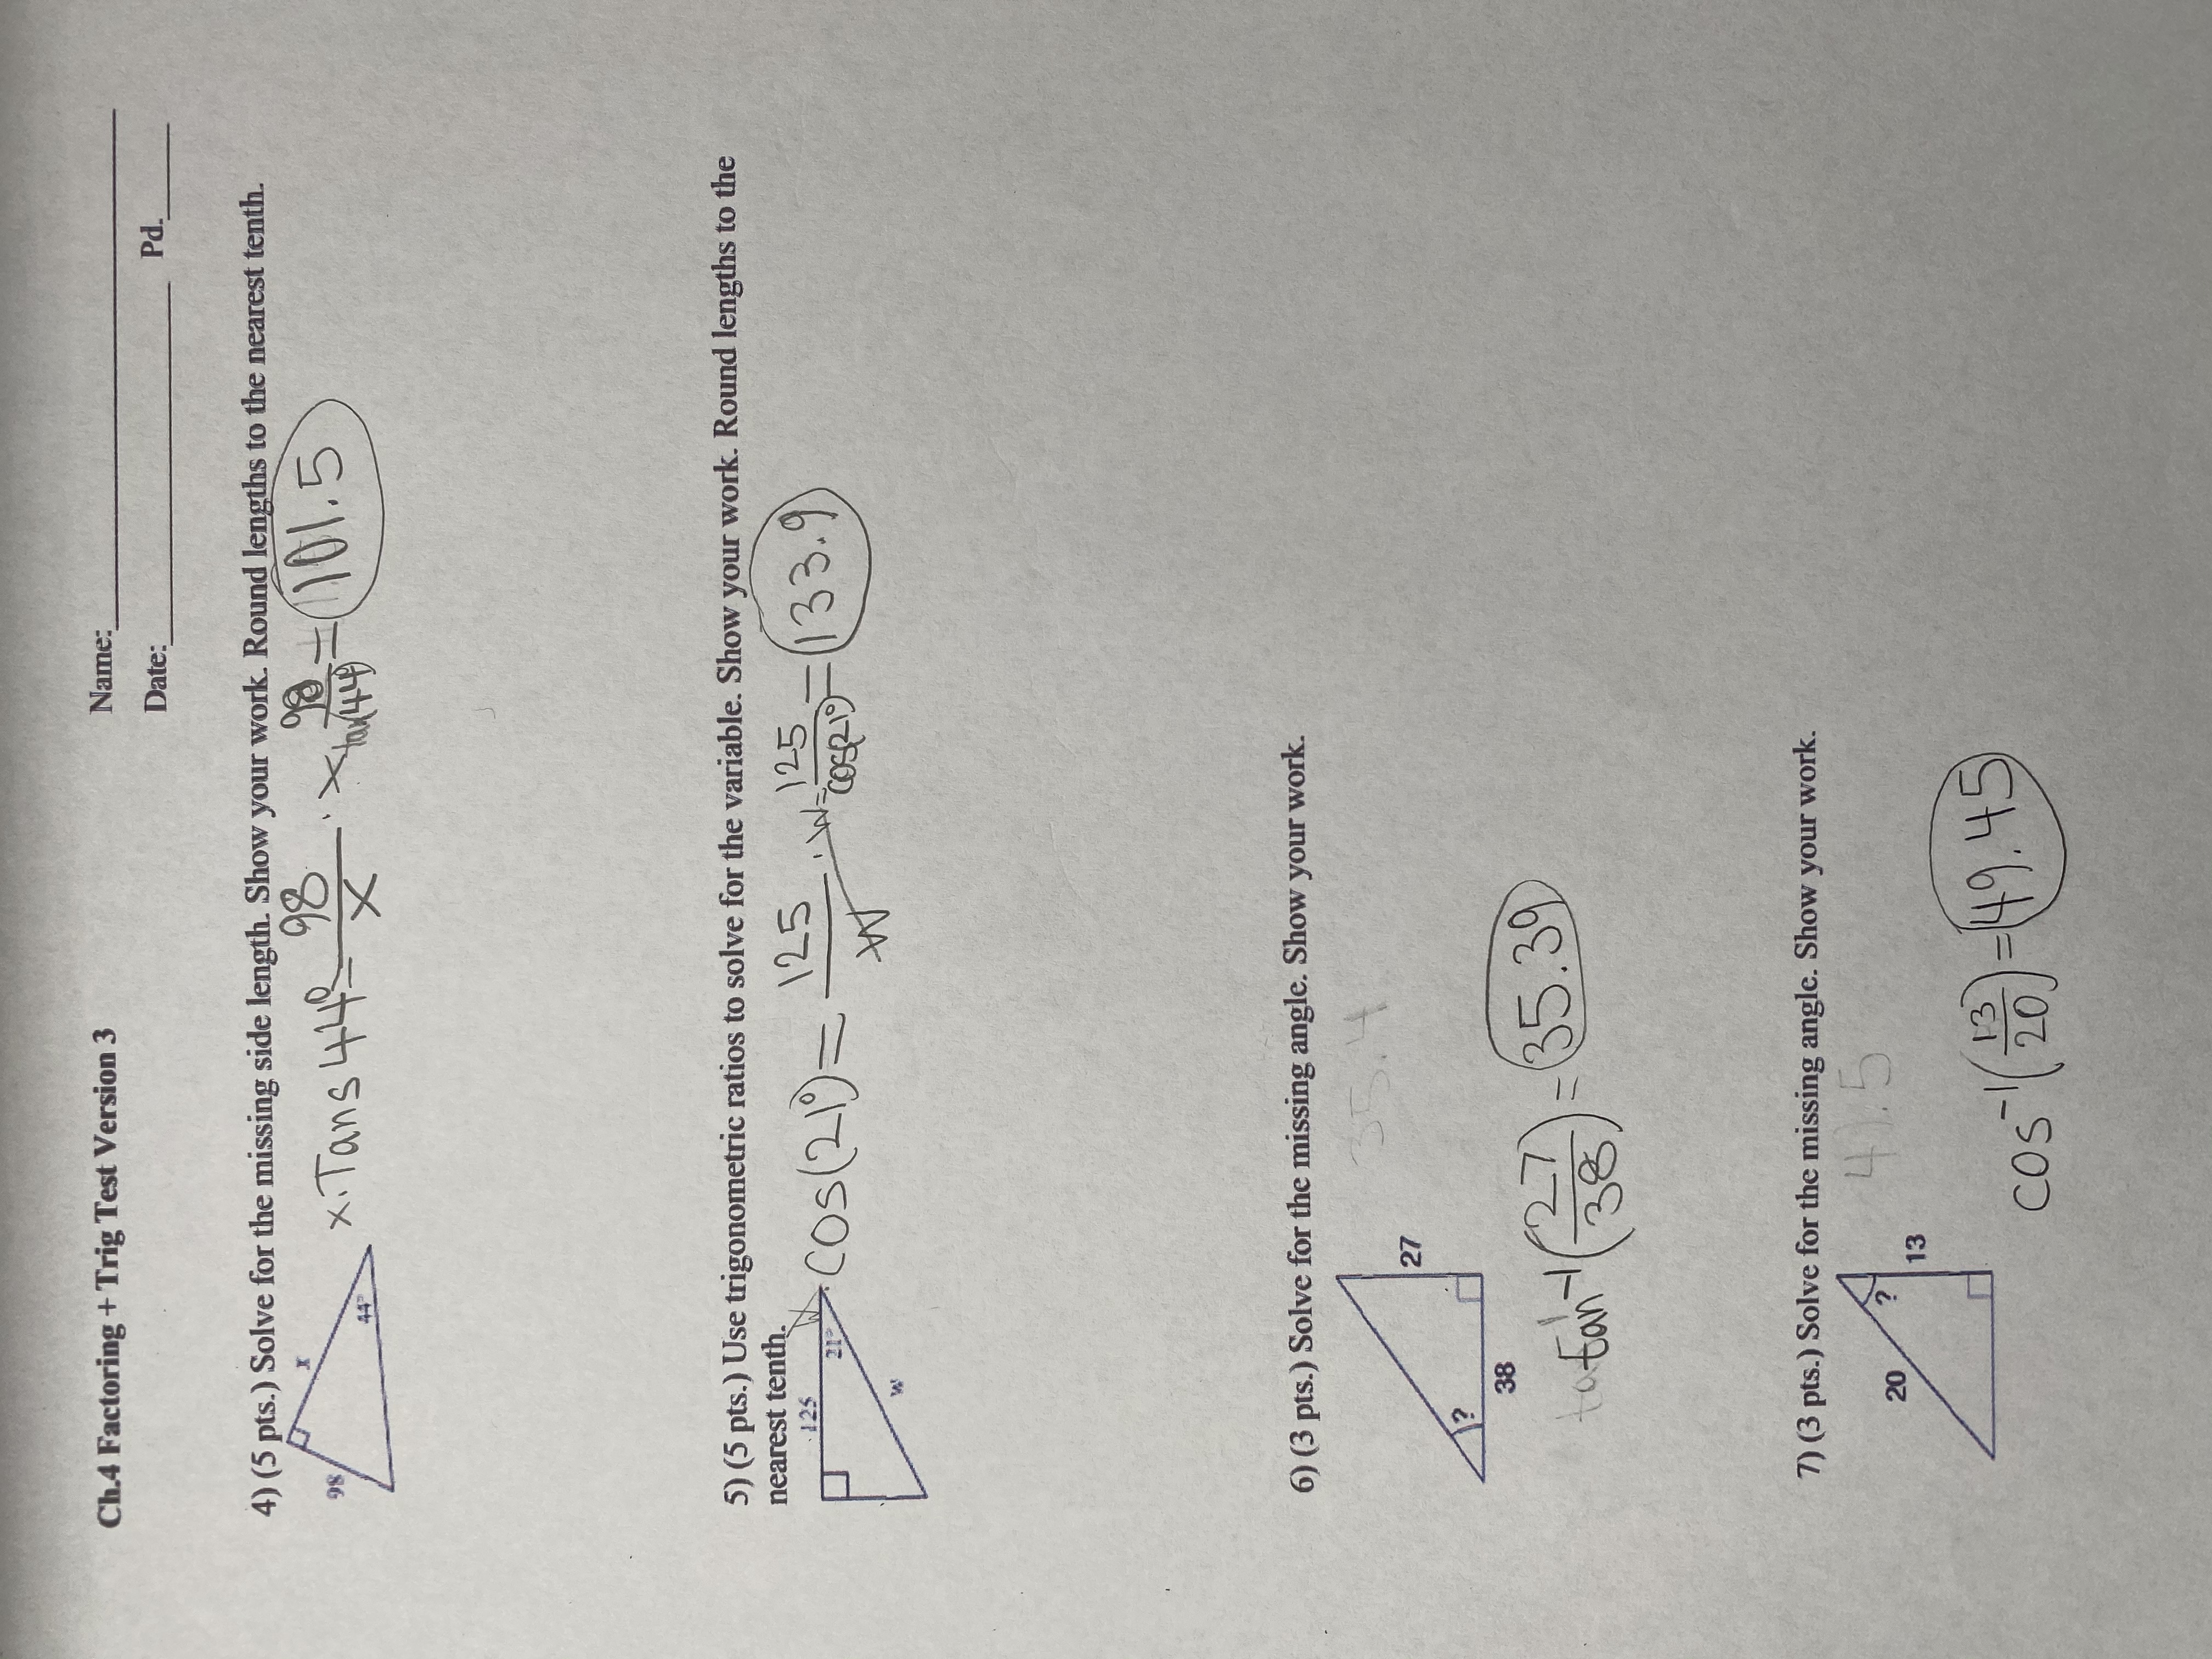 Ch.4 Factoring + Trig Test Version 3
Name:
Date: Pd.
4) (5 pts.) Solve for the missing side length. Show your work. Round lengths to the nearest tenth.
98 x 44°
x · Tans 44° = 98/x · x 98/tan(44) = 101.5
5) (5 pts.) Use trigonometric ratios to solve for the variable. Show your work. Round lengths to the
nearest tenth.
125 21° w
W cos(21°) = 125/W · W = 125/cos(21°) = 133.9
6) (3 pts.) Solve for the missing angle. Show your work.
35.4
27
?
38
tan⁻¹(27/38) = 35.39
7) (3 pts.) Solve for the missing angle. Show your work.
20 ? 13
cos⁻¹(13/20) = 49.45